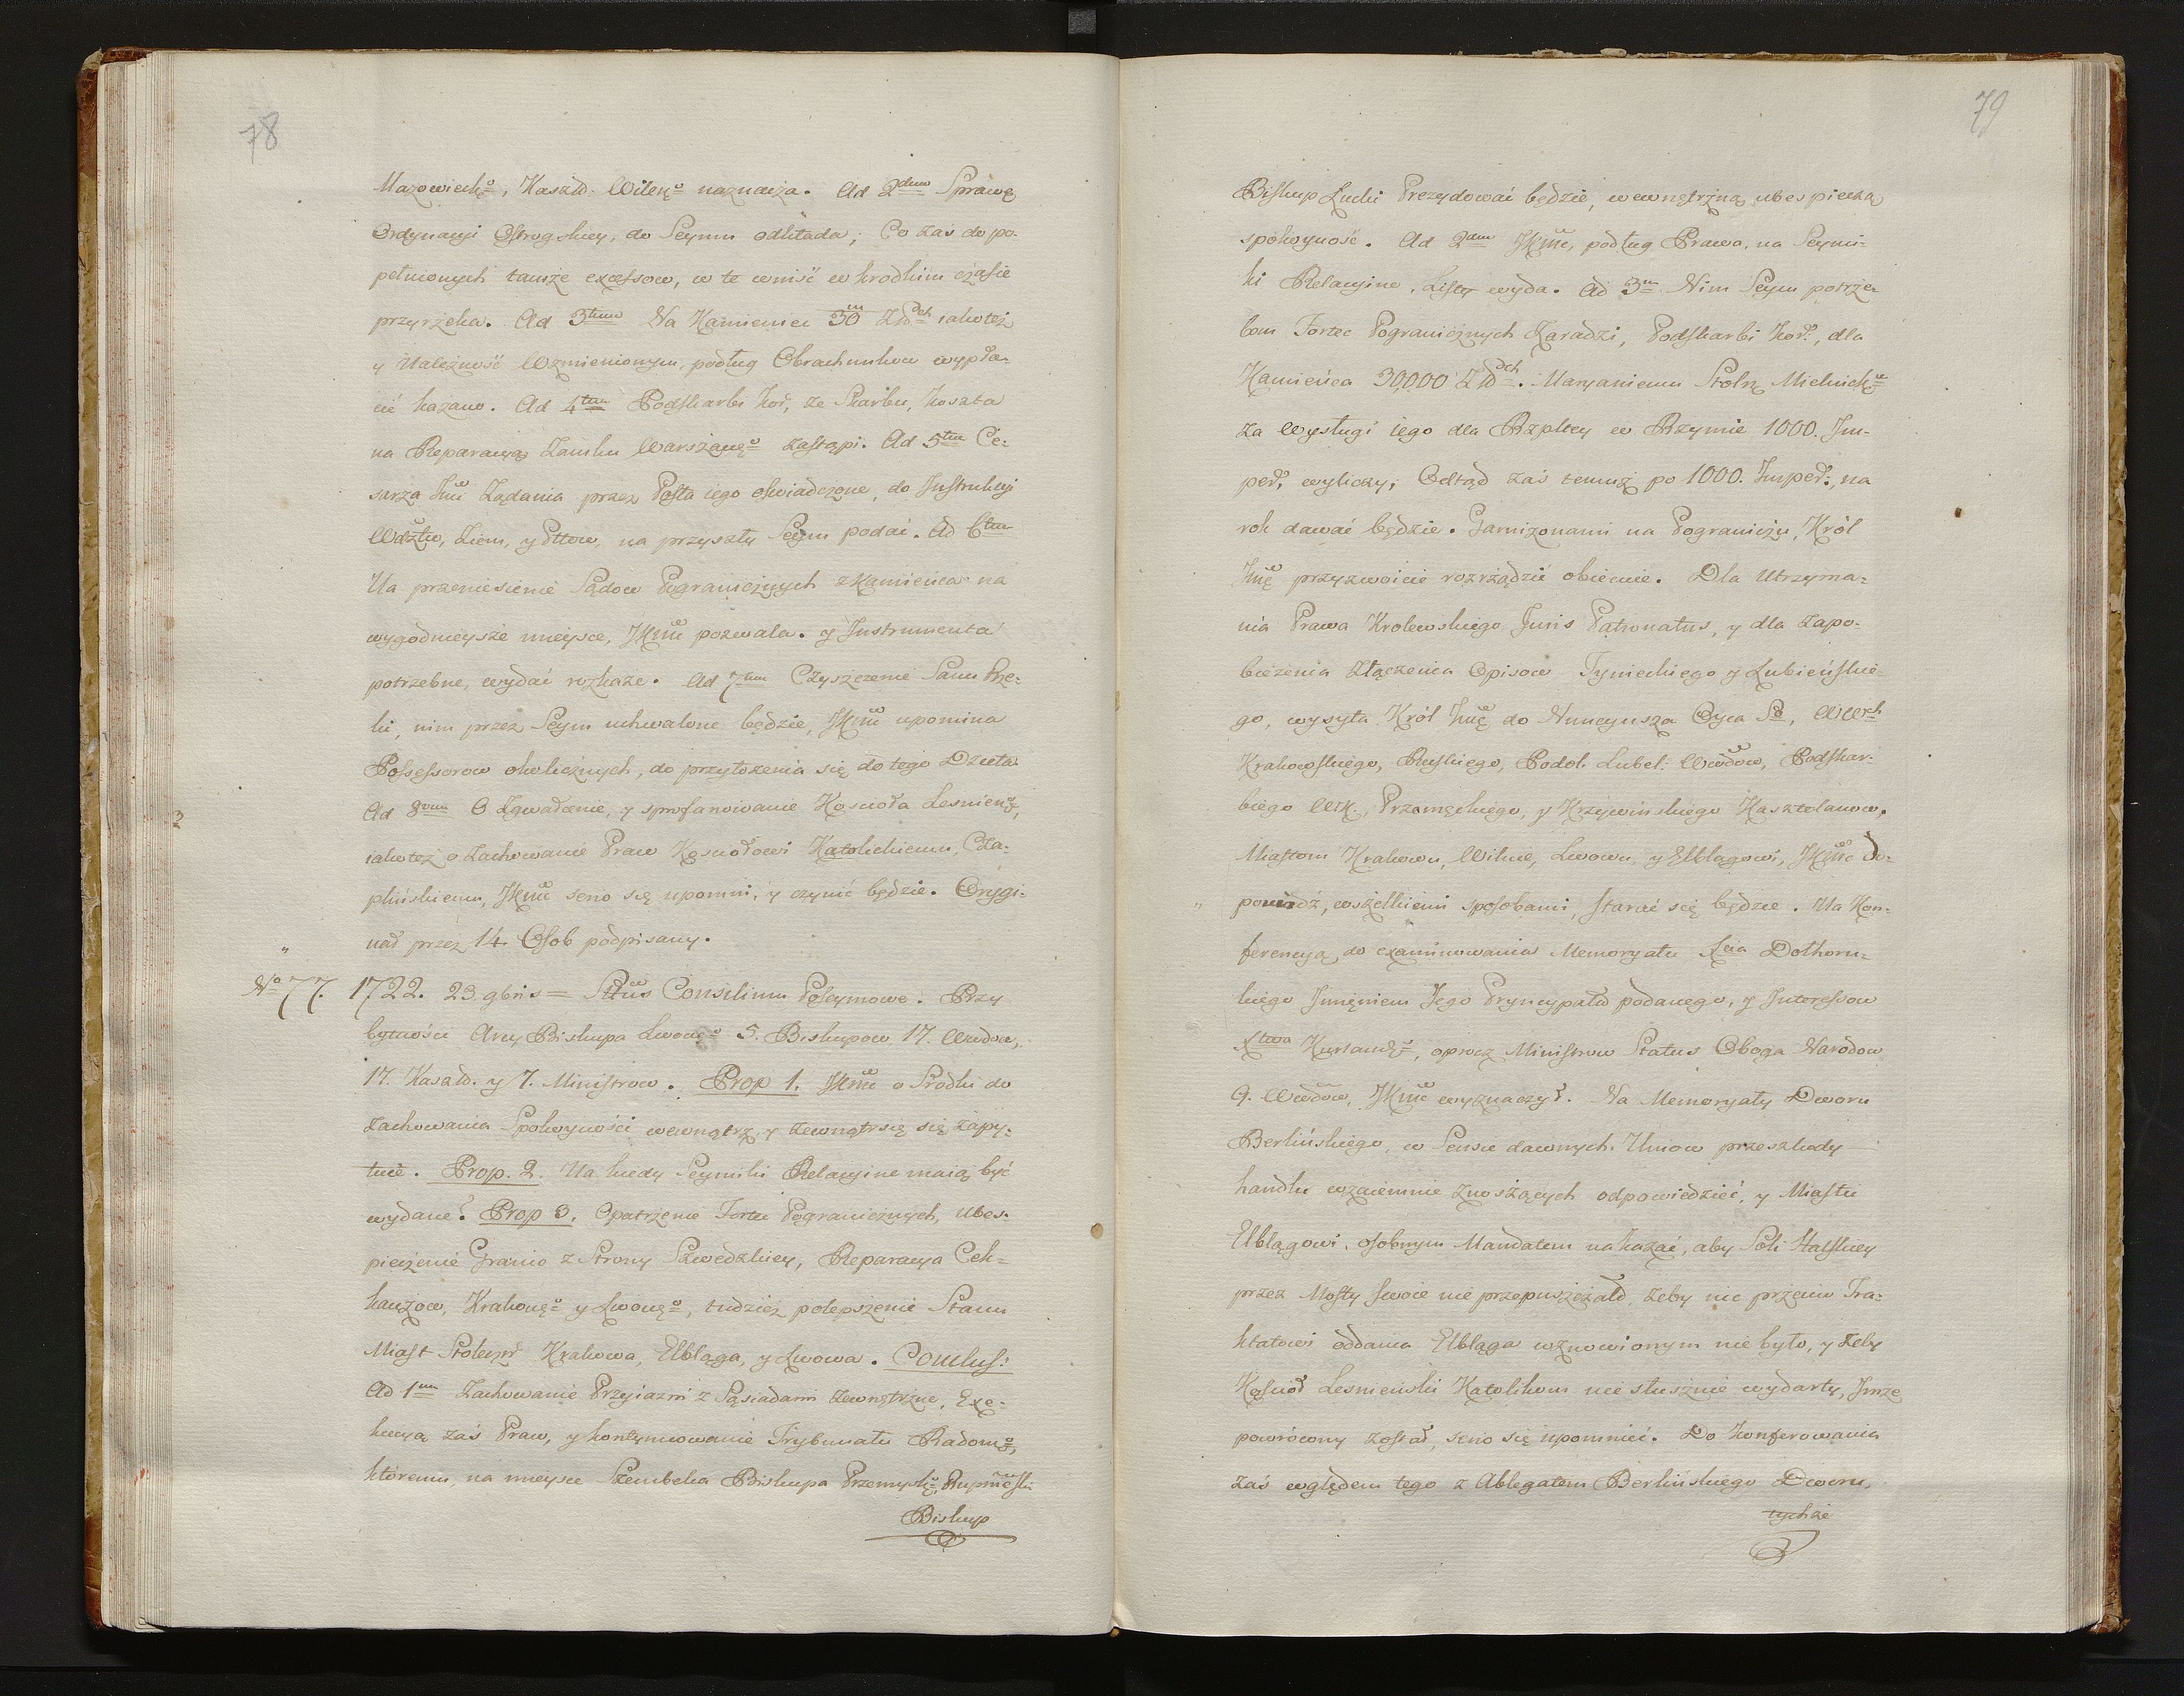 78
Mazowieckº, Kasztł. Wilenº naznacza. Ad 2dum Sprawę
Ordynacyi Ostrogskiey, do Seymu odkłada; Co zas do po-
pełnionych tamże excessow, w te wniść w krodkim czasie
przyrzeka. Ad 3tium Na Kamieniec 30m Złdch iakoteż
y Należność Wzmienionym, podług Obrachunkow wypła-
cić kazano. Ad 4tum Podskarbi Kor, ze Skarbu, Koszta
na Reparacyą Zamku Warszawº zastąpi. Ad 5tum Ce-
sarza Jmci Żądania przez Posła iego oświadczone, do Instrukcyi
Wdztw, Ziem, y Pttow, na przyszły Seym podać. Ad 6tum
Na przeniesienie Sądow Pogranicznych z Kamieńca na
wygodnieysze mieysce, JKmć pozwala. y Instrumenta
potrzebne, wydać rozkaże. Ad 7mum Czyszczenie Sanu Rze-
ki, nim przez Seym uchwalone będzie, JKmć upomina
Possessorow okolicznych, do przyłożenia się do tego Dzieła
Ad 8vum O Zgwałcenie, y sprofanowanie Kościoła Lesnienº,
iakoteż o Zachowanie Praw Kościołowi Katolickiemu, Cza-
plińskiemu, JKmć serio się upomni, y czynić będzie. Orygi-
nał przez 14. Osob podpisany.
No 77. 1722. 23. 9bris = Sttus Consilium Poseymowe. Przy
bytności Arcy Biskupa Lwowº 5. Biskupow 17. Wwdow,
17. Kasztł. y 7. Ministrow. Prop 1. JKmć o Srodki do
Zachowania Spokoyności wewnątrz, y zewnątrz się zapy-
tuie. Prop. 2. Na kiedy Seymiki Relacyine maią być
wydane? Prop 3. Opatrzenie Fortec Pogranicznych, ubes-
pieczenie Granic z Strony Szwedzkiey, Reparacya Cek-
hauzow, Krakowº y Lwowº, tudzież polepszenie Stanu
Miast Stołecznᵈ Krakowa, Elbląga, y Lwowa. Conclus:
Ad 1um Zachowanie Przyiazni z Sąsiadami zewnętrzne, Exe-
kucyą zaś Praw, y kontynuowanie Trybunału Radomº,
któremu, na mieysce Szembeka Biskupa Przemyskº,
Biskup
79
Biskup Łucki Prezydować będzie, wewnętrzną ubespieczą
spokoyność. Ad 2dum JKmć, podług Prawa, na Seymi-
ki Relacyine, Listy wyda. Ad 3um Nim Seym potrze-
bom Fortec Pogranicznych Zaradzi, Podskarbi Kor, dla
Kamieńca 30,000 Złdch. Maryaniemu Stoln Mielnickº
za wysługi iego dla Rzpltey w Rzymie 1000. Im-
per, wyliczy; Odtąd zaś temuż po 1000. Imper:, na
rok dawać będzie. Garnizonami na Pograniczu, Król
Jmć przyzwoicie rozrządzić obiecuie. Dla Utrzyma-
nia Prawa Krolewskiego Juris Patronatus, y dla Zapo-
bieżenia Złączenia Opisow Tynieckiego y Lubieńskie-
go, wysyła Król Jmć do Nuncyusza Oyca So, WWch
Krakowskiego, Ruskiego, Podol. Lubel: Wwdow, Podskar-
biego WK. Przemęckiego, y Krzywińskiego Kasztelanow.
Miastom Krakowu, Wilnie, Lwowu y Elblągowi, JKmć do-
pomódz, wszelkiemi sposobami, starać się będzie. Na Kon-
ferencyą do examinowania Memoryału Xcia Dolhoru-
kiego Imieniem Jego Pryncypała podanego, y Interessow
Xtwa Kurlandº, oprocz Ministrow Status Oboga Narodow
9. Wwdow, JKmć wyznaczył. Na Memoryały Dworu
Berlińskiego, w Sensie dawnych Umow przeszkody
handlu wzaiemnie znoszących odpowiedzieć, y Miastu
Elblągowi, osobnym Mandatem nakazać, aby Soli Halskiey
przez Mosty swoie nie przepuszczał, żeby nic przeciw Tra-
ktatowi oddania Elbląga wznowionym nie było, y żeby
Kościoł Lesnieński Katolikom nie słusznie wydarty, Imże
powrócony został, serio się upomnieć. Do Konferowania
zaś względem tego z Ablegatem Berlińskiego Dworu,
tychże